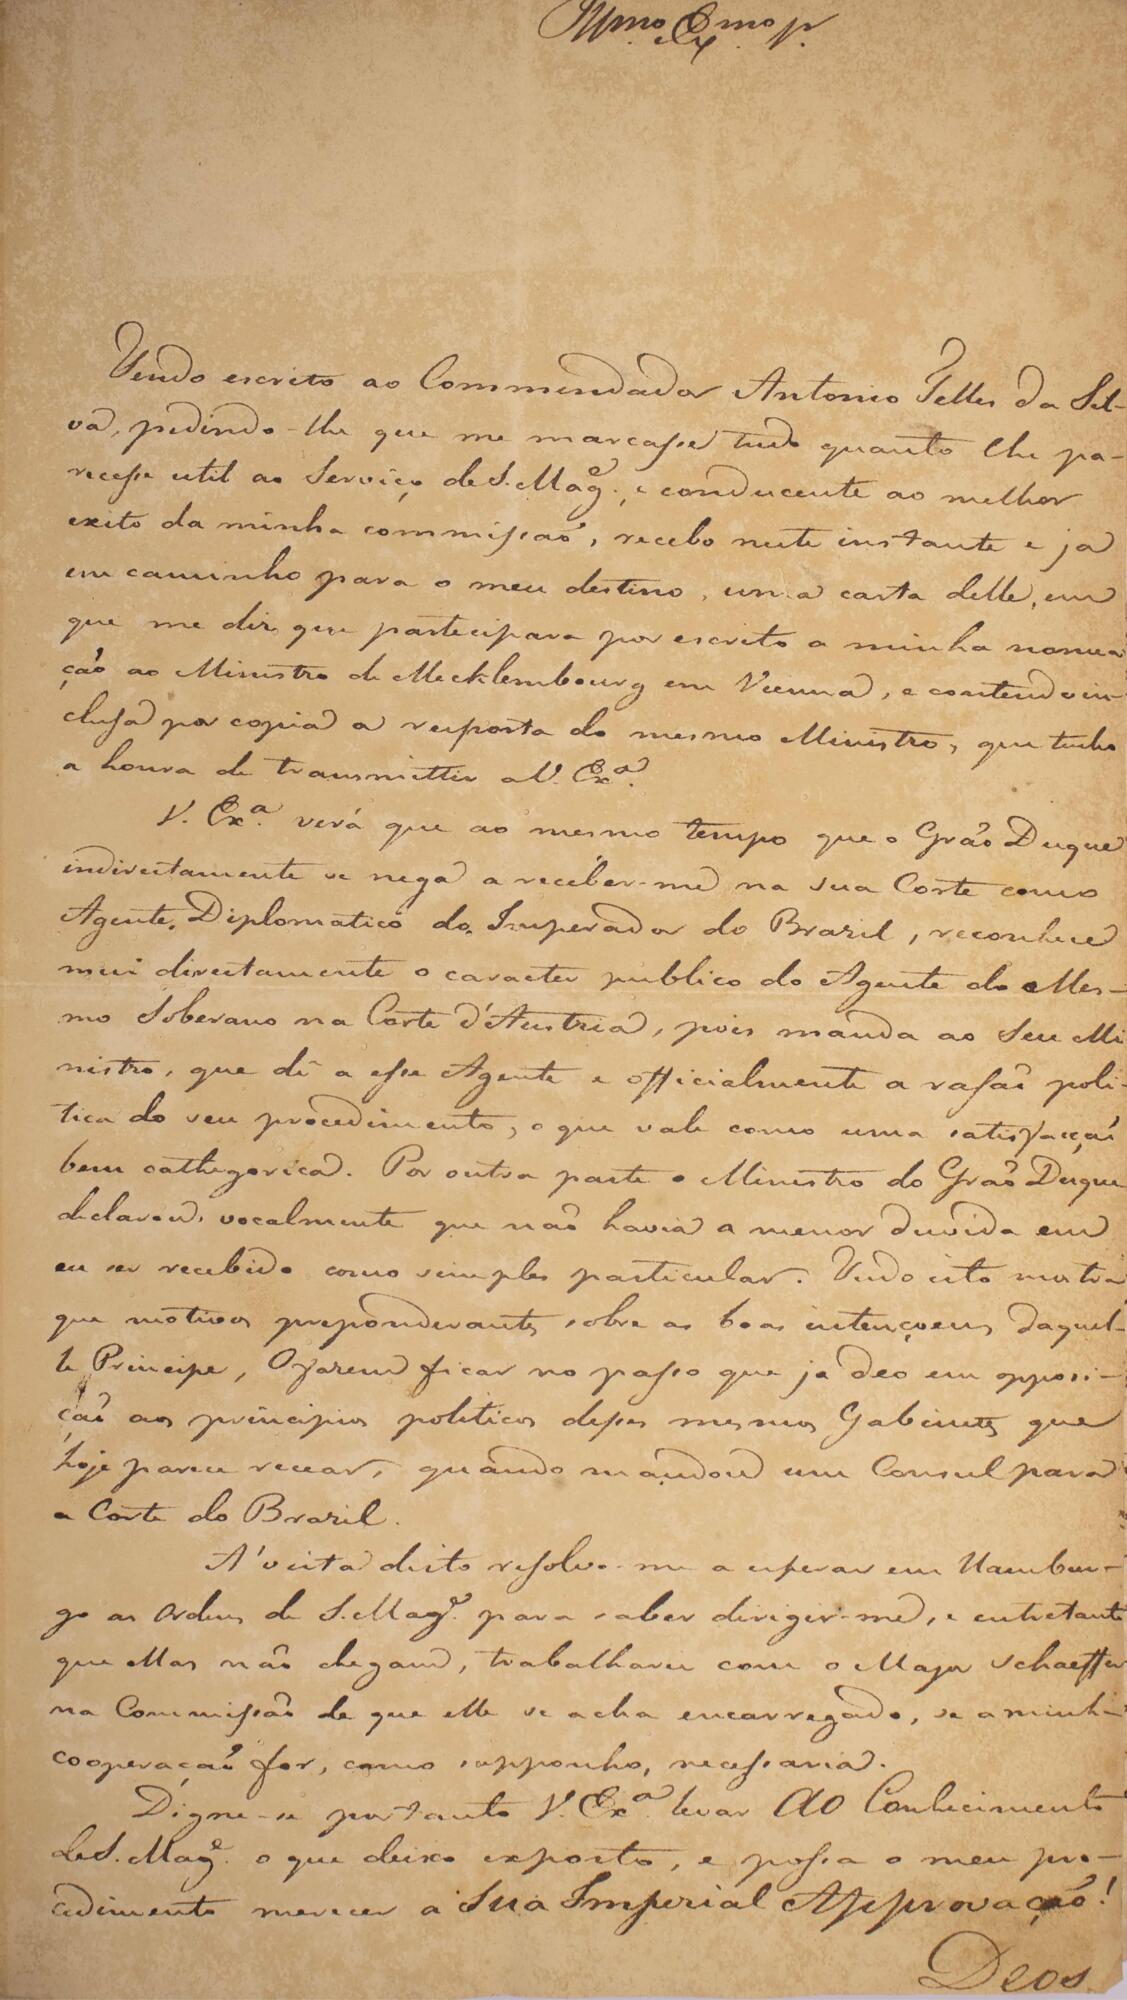 Illmo. Exmo. Sr.
Tendo escrito ao Commendador Antonio Telles da Sil-
va, pedindo-lhe que me marcasse tudo quanto lhe pa-
recesse util ao Serviço de S. Mage., e conducente ao melhor
exito da minha commissaõ, recebo neste instante e ja
em caminho para o meu destino, uma carta delle, em
que me diz que participara por escrito a minha nomea
çaõ ao Ministro de Mecklembourg em Vienna, e contendo in-
clusa por copia a resposta do mesmo Ministro, que tenho
a honra de transmittir a V. Exa.
V. Exa. verá que ao mesmo tempo que o Graõ Duque
indirectamente se nega a receber-me na sua Corte como
Agente Diplomatico do Imperador do Brazil, reconhece
mui directamente o caracter publico do Agente do Mes-
mo Soberano na Corte d'Austria, pois manda ao seu Mi
nistro, que dê a esse Agente e officialmente a rasaõ poli-
tica do seu procedimento, o que vale como uma satisfacçaõ
bem cathegorica. Por outra parte o Ministro do Graõ Duque
declarou vocalmente que naõ havia a menor duvida em
eu ser recebido como simples particular. Tudo isto mostra
que motivos preponderantes sobre as boas intençoens daquel-
le Principe, O fazem ficar no passo que já deo em opposi-
çaõ aos principios politicos desses mesmos Gabinetes que
hoje parece recear, quando mandou um Consul para
a Corte do Brazil.
A' vista disto resolvo-me a esperar em Hambur-
go as Ordens de S. Mage. para saber dirigir-me, e entretanto
que Ellas naõ chegam, trabalharei com o Major Schaeffer
na Commissaõ de que elle se acha encarregado, se a minha
cooperaçaõ for, como supponho, necessaria.
Digne-se portanto V. Exa. levar ao Conhecimento
de S. Mage. o que deixo exposto, e possa o meu pro-
cedimento merecer a Sua Imperial Approvaçaõ!
Deos